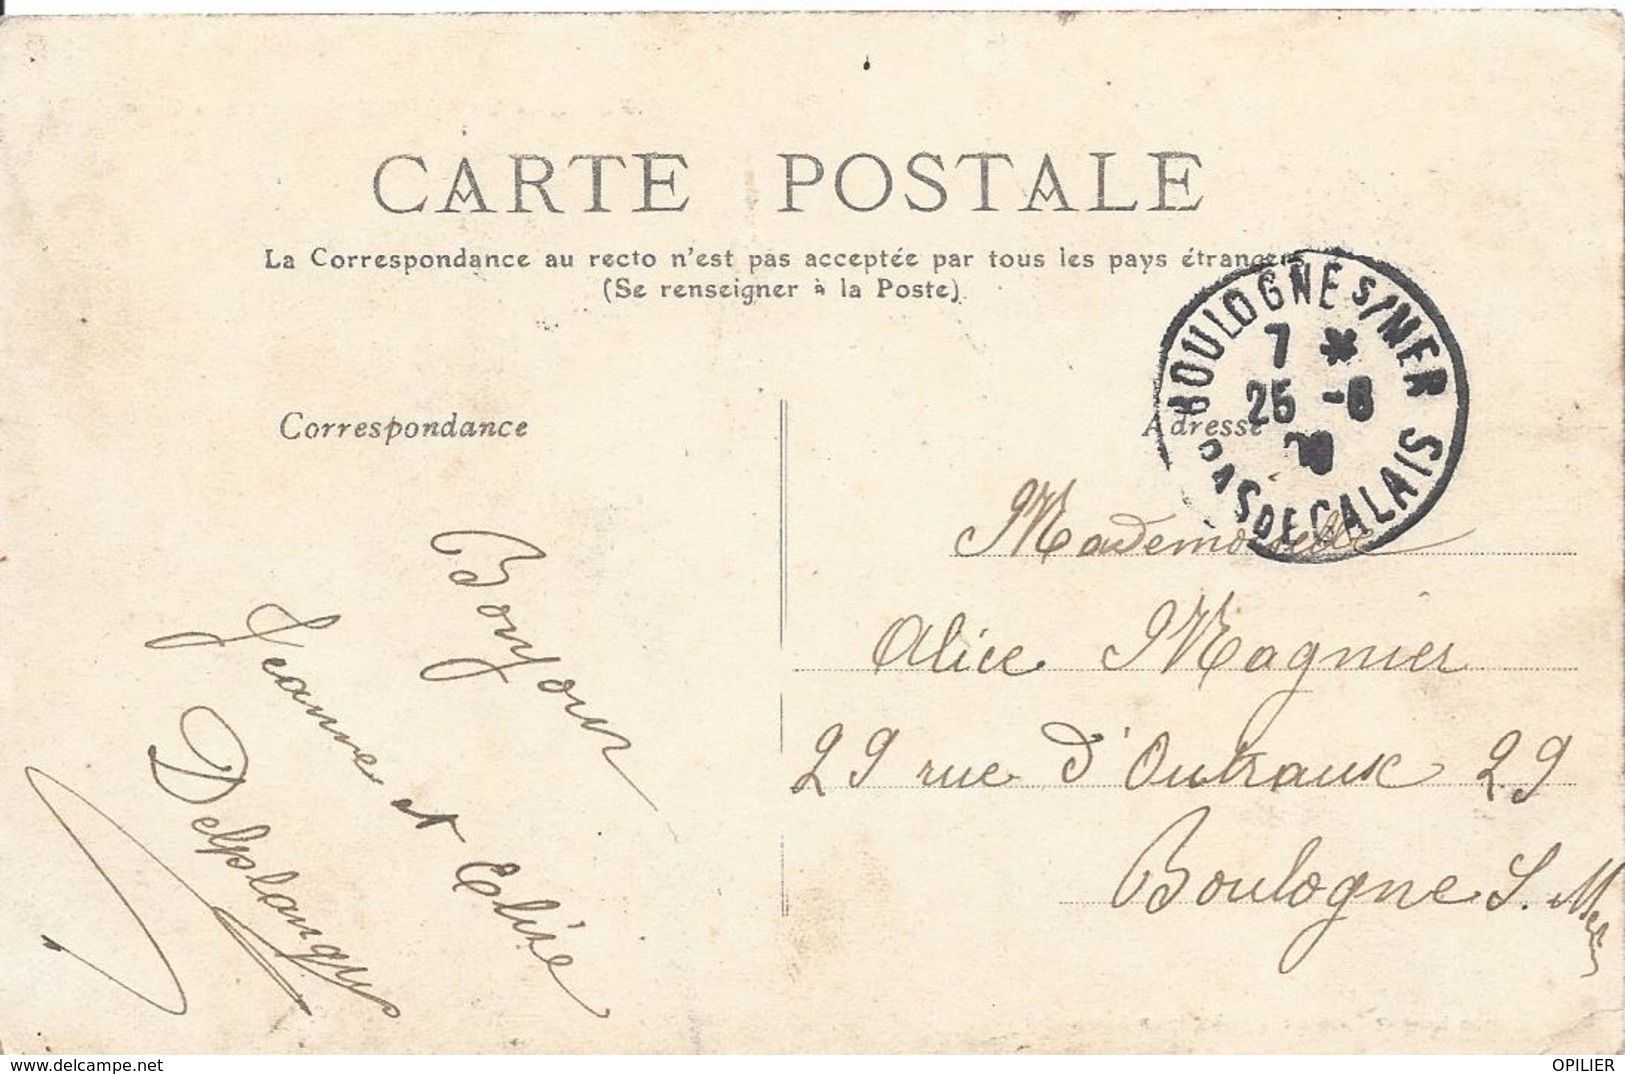 CARTE POSTALE
La Correspondance au recto n'est pas acceptée par tous les pays étrangers
(Se renseigner à la Poste)
Correspondance
Adresse
BOULOGNE S/MER
7 *
25 -8
PAS DE CALAIS
Bonjour
Jeanne et Elise
Delplanque
Mademoiselle
Alice Magnier
29 rue d'Outraux 29
Boulogne S. Mer
www.delcampe.net
OPILIER